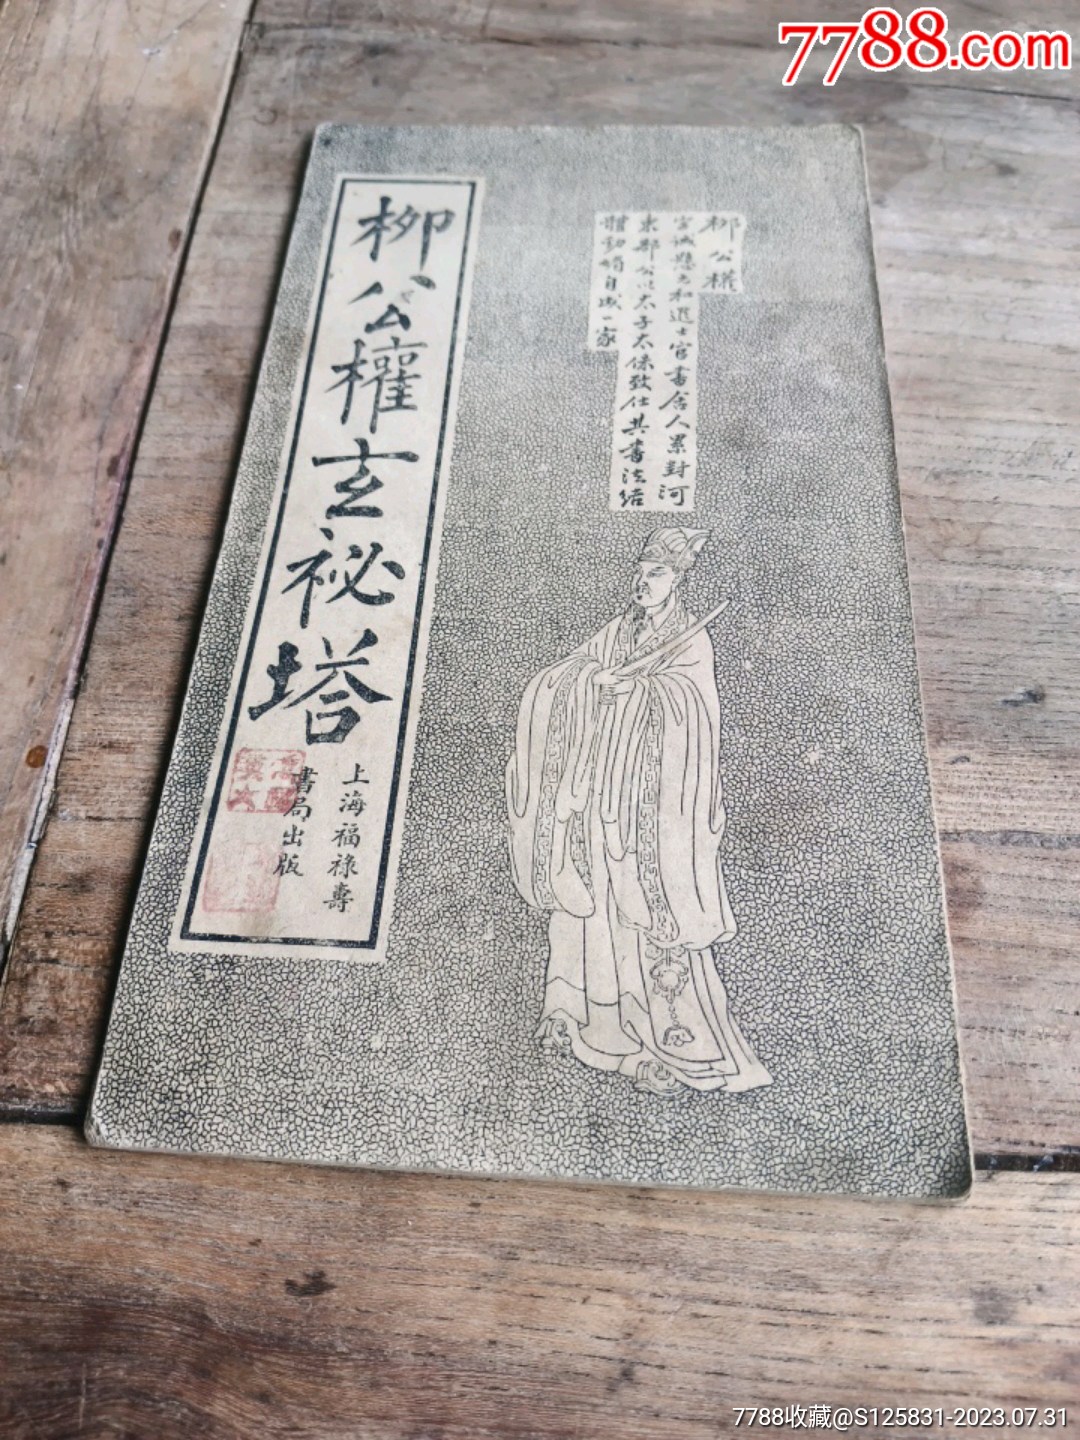 7788.com
柳公權
字誠懸元和進士官書舍人累封河
東郡公以太子太保致仕其書法結
體勁媚自成一家
柳公權玄祕塔
上海福祿壽
書局出版
7788收藏@S125831-2023.07.31